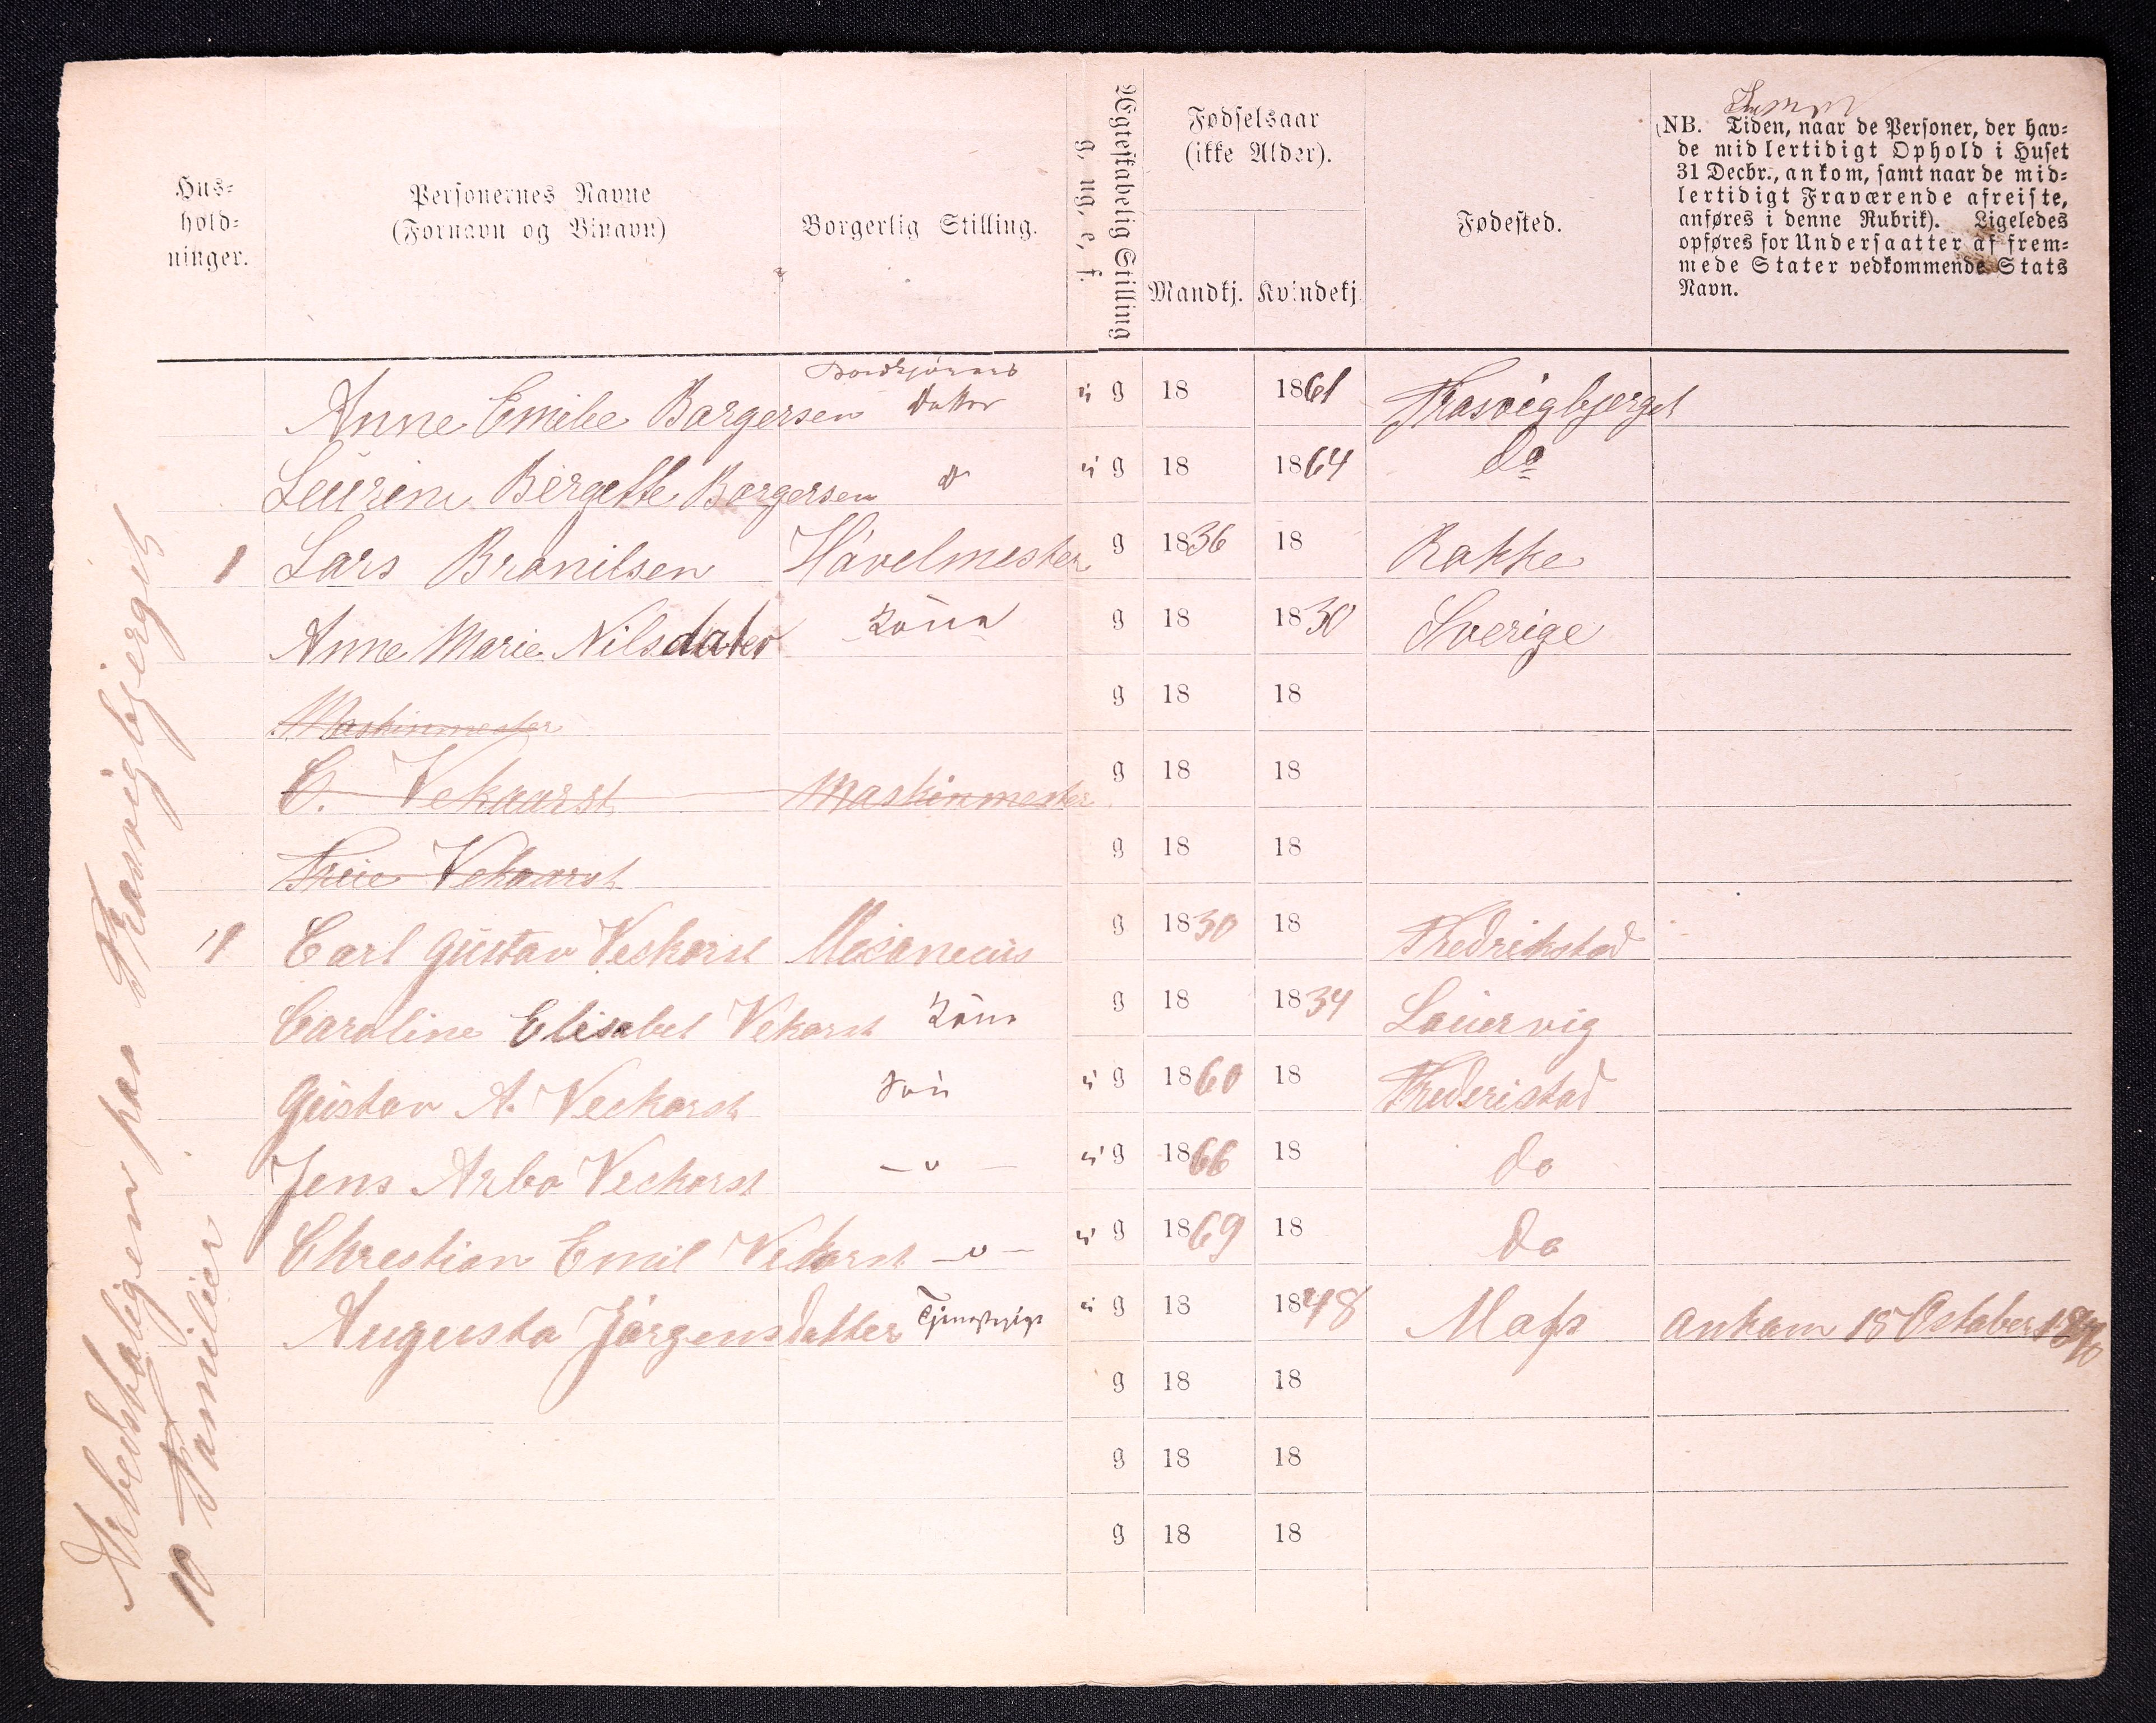 Hus-
hold-
ninger.
Personernes Navne
(Fornavn og Binavn)
Borgerlig Stilling.
Ægteskabelig Stilling
g, ug, e, f.
Fødselsaar
(ikke Alder).
Mandkj. Kvindekj.
Fødested.
(NB. Tiden, naar de Personer, der hav-
de midlertidigt Ophold i Huset
31 Decbr., ankom, samt naar de mid-
lertidigt Fraværende afreiste,
anføres i denne Rubrik). Ligeledes
opføres for Undersaatter af frem-
mede Stater vedkommende Stats
Navn.
Anne Emilie Borgersen Datter u g 18 1861 Trosvigbjerget
Laurine Bergette Borgersen u g 18 1864 do
1 Lars Bronilsen Hövelmester g 1836 18 Rokke
Anne Marie Nilsdater Kona g 18 1830 Sverige
Maskinmester g 18 18
C. Vekaarst Maskinmester g 18 18
Vekaarst g 18 18
1 Carl Gustav Veckorst Mecanecus g 1830 18 Fredrikstad
Caroline Elisabet Vekorst Kona g 18 1834 Lauervig
Gustav A. Veckorst Sön u g 1860 18 Frederistad
Jens Arbo Veckorst — " — u g 1866 18 do
Chrestian Emil Vekorst — " — u g 1869 18 do
Augusta Jörgensdatter Tjenestepige u g 18 1848 Moss ankom 15 Octaber 1870
g 18 18
g 18 18
g 18 18
Arbeidsboligen paa Trosvigbjerget
10 Familier